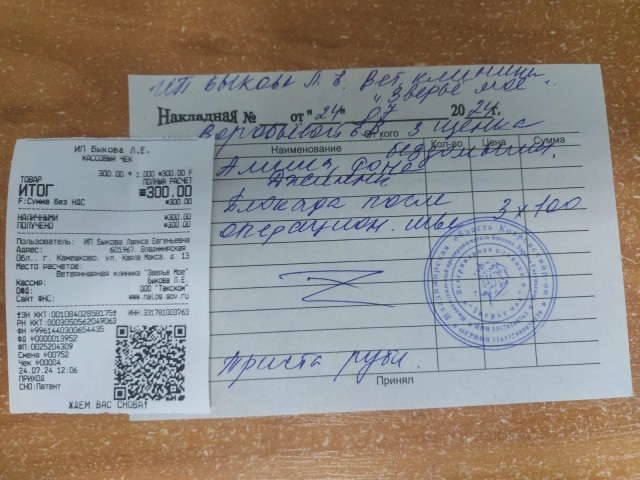 ИП Быкова Л.Е. Вет. клиника
"Зверьё моё".
Накладная № от "24" 07 2024г.
Воробьёвой
кого 3 щенка
Наименование Кол-во Цена Сумма
Алиша
Блокада после
операцион. шва 3х100
Триста руб.
Принял
ИП Быкова Л.Е.
КАССОВЫЙ ЧЕК
300.00 * 1.000 =300.00 F
ТОВАР ПОЛНЫЙ РАСЧЕТ
ИТОГ =300.00
F:Сумма без НДС =300.00
НАЛИЧНЫМИ =300.00
ПОЛУЧЕНО =300.00
Пользователь: ИП Быкова Лариса Евгеньевна
Адрес: 601967, Владимирская
Обл., г. Камешково, ул. Карла Маркса, д. 13
Место расчетов:
Ветеринарная клиника "Зверье Мое"
Кассир: Быкова Л.Е.
ОФД: ООО "Такском"
Сайт ФНС: www.nalog.gov.ru
ЗН ККТ:00108402858175 ИНН:331781003763
РН ККТ:0003050562049063
ФН №9961440300654435
ФД №0000013952
ФП:0025204309
Смена №00752
Чек №00004
24.07.24 12:06
ПРИХОД
СНО:Патент
ЖДЕМ ВАС СНОВА!